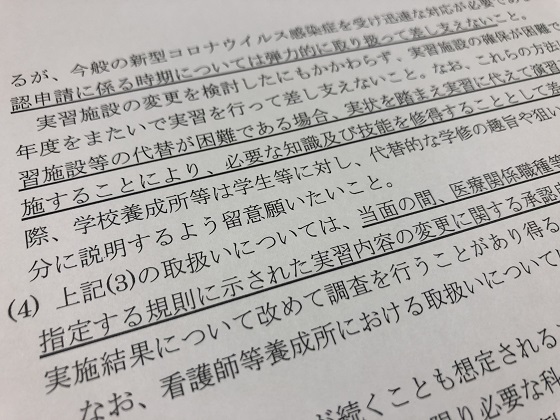 るが、今般の新型コロナウイルス感染症を受け迅速な対応が必要であ
認申請に係る時期については弾力的に取り扱って差し支えないこと。
実習施設の変更を検討したにもかかわらず、実習施設の確保が困難で
年度をまたいで実習を行って差し支えないこと。なお、これらの方法
習施設等の代替が困難である場合、実状を踏まえ実習に代えて演習
施することにより、必要な知識及び技能を修得することとして差
際、学校養成所等は学生等に対し、代替的な学修の趣旨や狙い
分に説明するよう留意願いたいこと。
(4) 上記(3)の取扱いについては、当面の間、医療関係職種等
指定する規則に示された実習内容の変更に関する承認
実施結果について改めて調査を行うことがあり得る
なお、看護師等養成所における取扱いについ
が続くことも想定される
限り必要な科